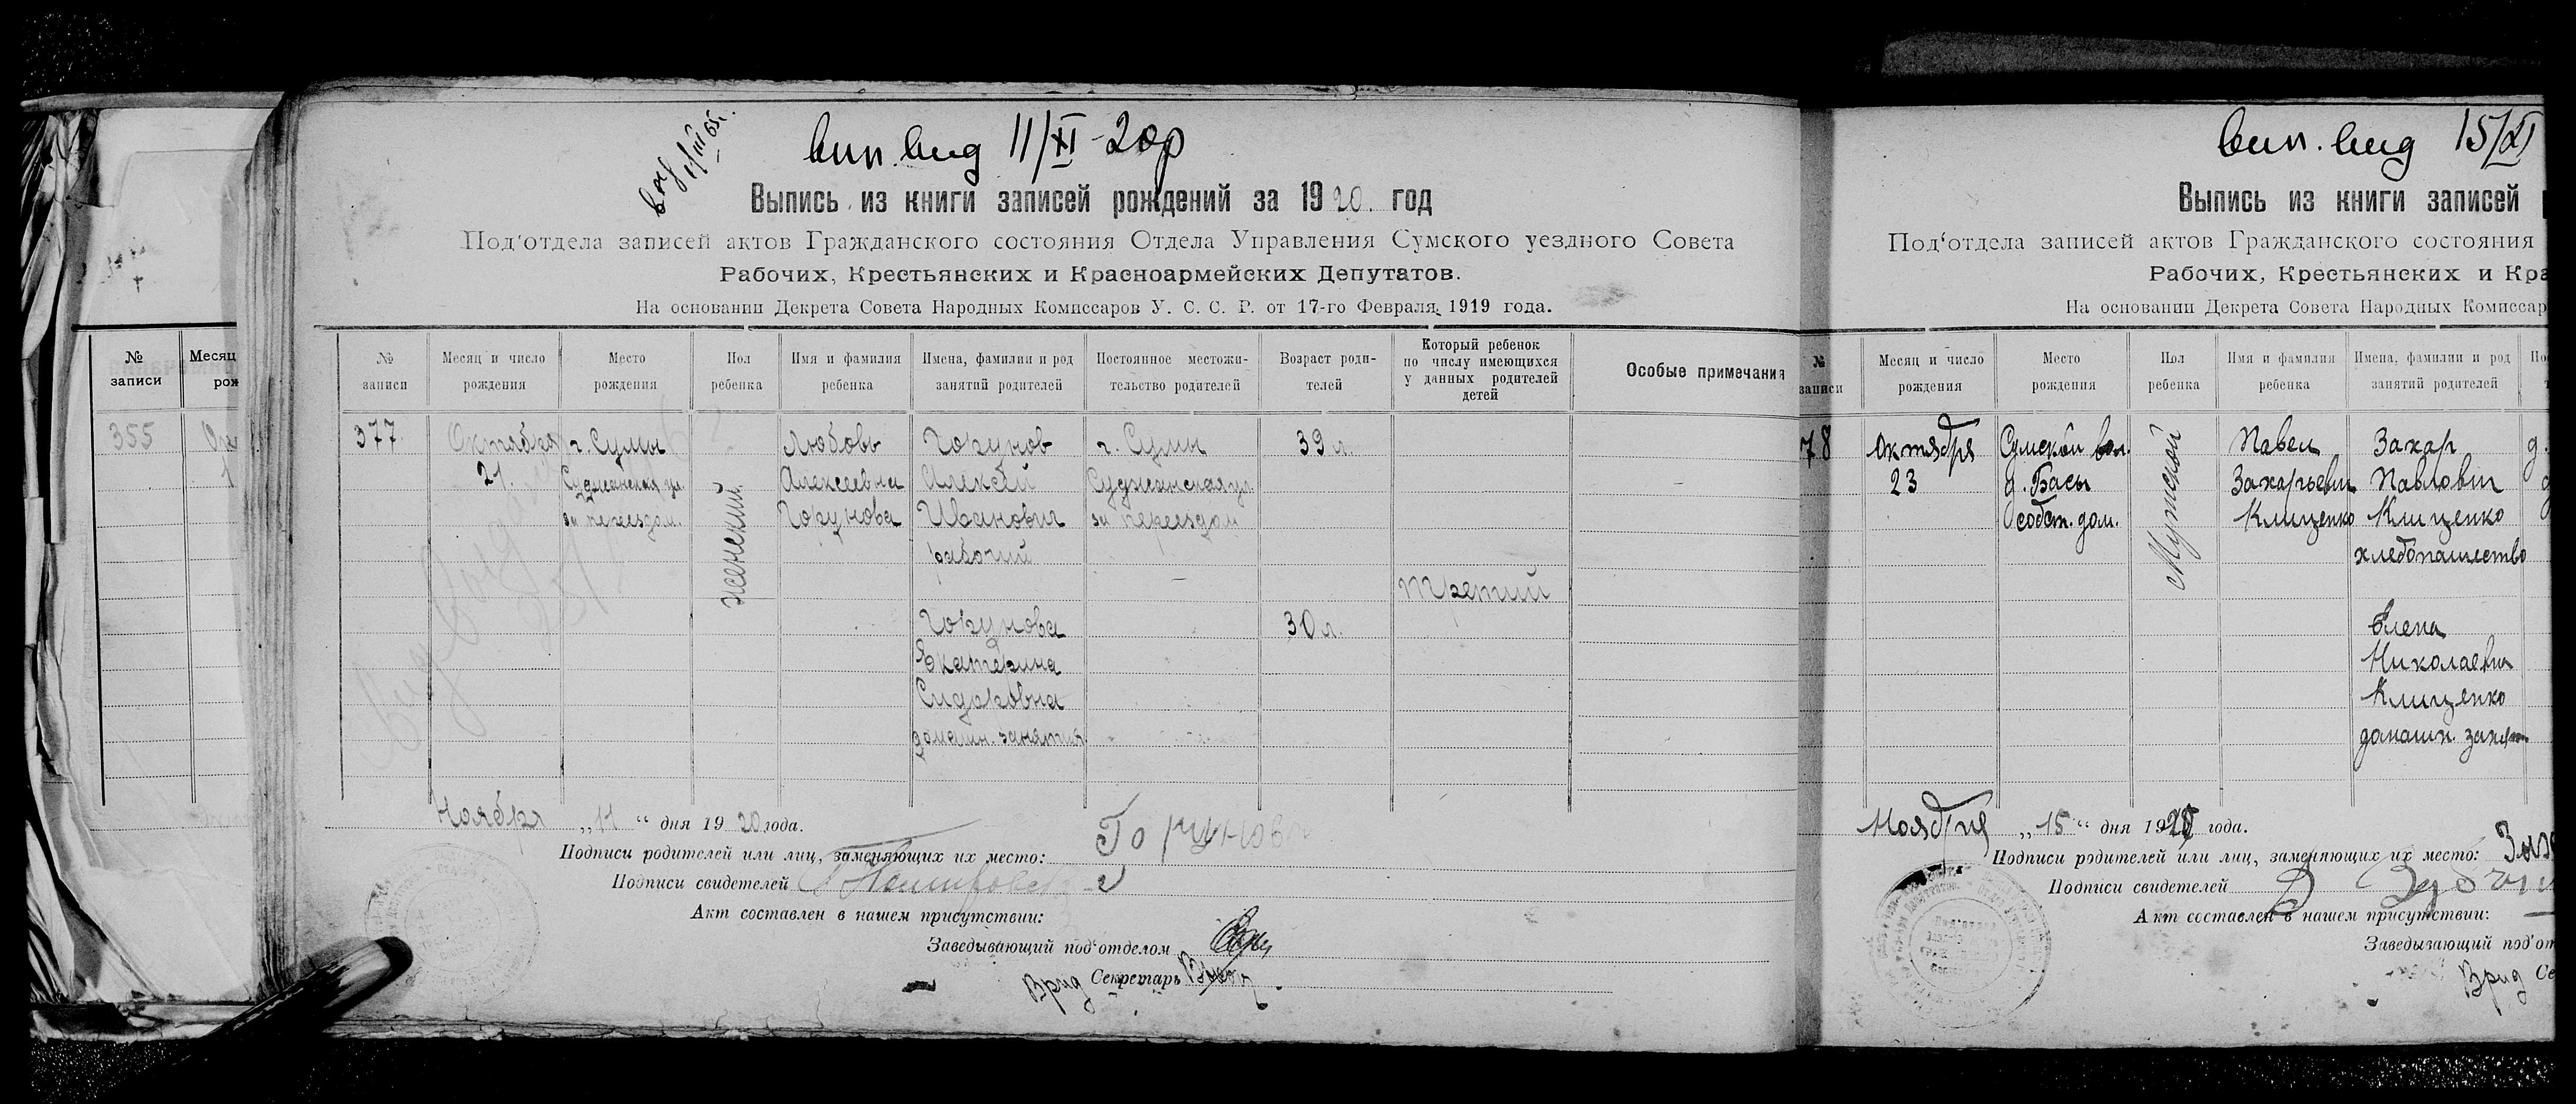 вып. вид 11/XI-20р
Выпись из книги записей рождений за 1920 год
Под'отдела записей актов Гражданского состояния Отдела Управления Сумского уездного Совета
Рабочих, Крестьянских и Красноармейских Депутатов.
На основании Декрета Совета Народных Комиссаров У. С. С. Р. от 17-го Февраля 1919 года.
№ записи
Месяц и число рождения
Место рождения
Пол ребенка
Имя и фамилия ребенка
Имена, фамилии и род занятий родителей
Постоянное местожительство родителей
Возраст родителей
Который ребенок по числу имеющихся у данных родителей детей
Особые примечания
377
Октября
21
г. Сумы
Суджанская ул.
за переездом.
женский
Любовь
Алексеевна
Горунова
Горунов
Алексей
Иванович
рабочий
г. Сумы
Суджанская ул.
за переездом
39 л.
третий
Горунова
Екатерина
Сидоровна
домашн. занятия
30 л.
Ноября „11“ дня 1920 года.
Подписи родителей или лиц, заменяющих их место: Горунов
Подписи свидетелей
Акт составлен в нашем присутствии:
Заведывающий под'отделом
Врид Секретарь
№ записи
Месяц
рож
355
вып. вид 15/XI
Выпись из книги записей
Под'отдела записей актов Гражданского состояния
Рабочих, Крестьянских и Кра
На основании Декрета Совета Народных Комиссар
№ записи
Месяц и число рождения
Место рождения
Пол ребенка
Имя и фамилия ребенка
Имена, фамилии и род занятий родителей
78
Октября
23
Сумской вол.
д. Басы
собст. дом.
Мужской
Павел
Захарьевич
Клиценко
Захар
Павлович
Клиценко
хлебопашество
Елена
Николаевна
Клиценко
домашн. занят
Ноября „15“ дня 1920 года.
Подписи родителей или лиц, заменяющих их место:
Подписи свидетелей
Акт составлен в нашем присутствии:
Заведывающий под'от
Врид Се